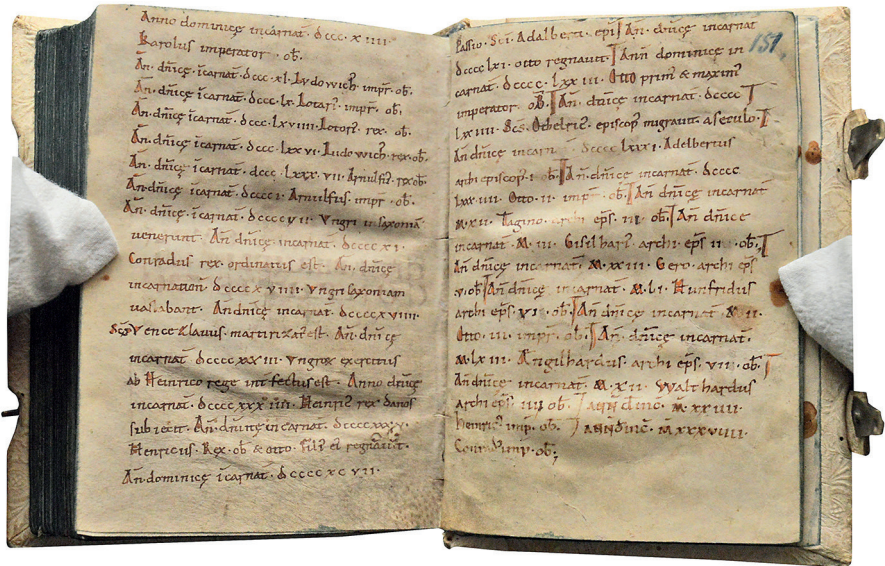 Anno dominicę incarnat̄· dccc· x iiii·
Karolus imperator· ob̄·
An̄· dn̄icę īcarnat̄· dccc· xl· Ludowicꝰ impr̄· ob̄·
An̄· dn̄icę īcarnat̄· dccc· lv· Lotarꝰ· impr̄· ob̄·
An̄· dn̄icę īcarnat̄· dccc· lxviiii· Lotorꝰ· rex· ob̄·
An̄· dn̄icę īcarnat̄· dccc· lxxvi· Ludowicꝰ· rex· ob̄·
An̄· dn̄icę īcarnat̄· dccc· lxxx· vii· Arnulfꝰ· rex ob̄·
An̄· dn̄icę īcarnat̄· dcccc i· Arnulfus· impr̄· ob̄·
An̄· dn̄icę īcarnat̄· dcccc vii· Vngri in saxoniā
uenerunt· An̄· dn̄icę incarnat̄· dcccc xi·
Conradus rex ordinatus est· An̄· dn̄icę
incarnation̄· dcccc x viiii· Vngri saxoniam
uastabant· An̄· dn̄icę incarnat̄· dcccc xviiii·
Sc̄s Vencezlauus· martirizat̄ est· An̄· dn̄icę
incarnat̄· dcccc xx iii· Vngroꝝ exercitus
ab Heinrico rege int̄fectus est· Anno dn̄icę
incarnat̄· dcccc xxx iiii· Heinricꝰ rex danos
subiecit· An̄· dn̄icę incarnat̄· dcccc xxxv·
Henricus· Rex· ob̄ & otto· filiꝰ eī regnauit·
An̄· dominicę īcarnat̄· dcccc xc vii·
151
Passio· Sc̄i Adalberti· ep̄i An̄· dn̄icę incarnat̄
dcccc lxi· otto regnauit· An̄ dominicę in
carnat̄· dcccc· lxx iii· Otto primꝰ & maximꝰ
imperator ob̄· An̄· dn̄icę incarnat̄· dcccc
lx iiii· Sc̄s· Othelricꝰ· episcopꝰ migrauit a seculo·
An̄ dn̄icę incarn dcccc lxxx i· Adelbertus
archi episcopꝰ· i· ob̄· An̄· dn̄icę incarnat̄· dcccc
lxx iiii· Otto· ii· impr̄· ob̄· An̄· dn̄icę incarnat̄
m· xii· Tagino· archi ep̄s· iii· ob̄· An̄· dn̄icę
incarnat̄· m· iii· Gisilharꝰ· archi ep̄s ii· ob̄·
An̄· dn̄icę incarnat̄· m· xx iii· Gero· archi ep̄s
v· ob̄· An̄· dn̄icę incarnat̄· m· li· Hunfridus
archi ep̄s· vi· ob̄· An̄· dn̄icę incarnat̄· m· ii·
Otto· iii· impr̄· ob̄· An̄· dn̄icę incarnat̄·
m· lx iii· Ængilhardus· archi ep̄s· vii· ob̄·
An̄ dn̄icę incarnat̄· m· x ii· Walthardus
archi ep̄s· iiii ob̄· Ann̄ dīnc̄· m· xx iiii·
Heinricꝰ imp· ob̄· Ann̄ dīnc̄· m xxx viiii·
Conradꝰ imp̄· ob̄·